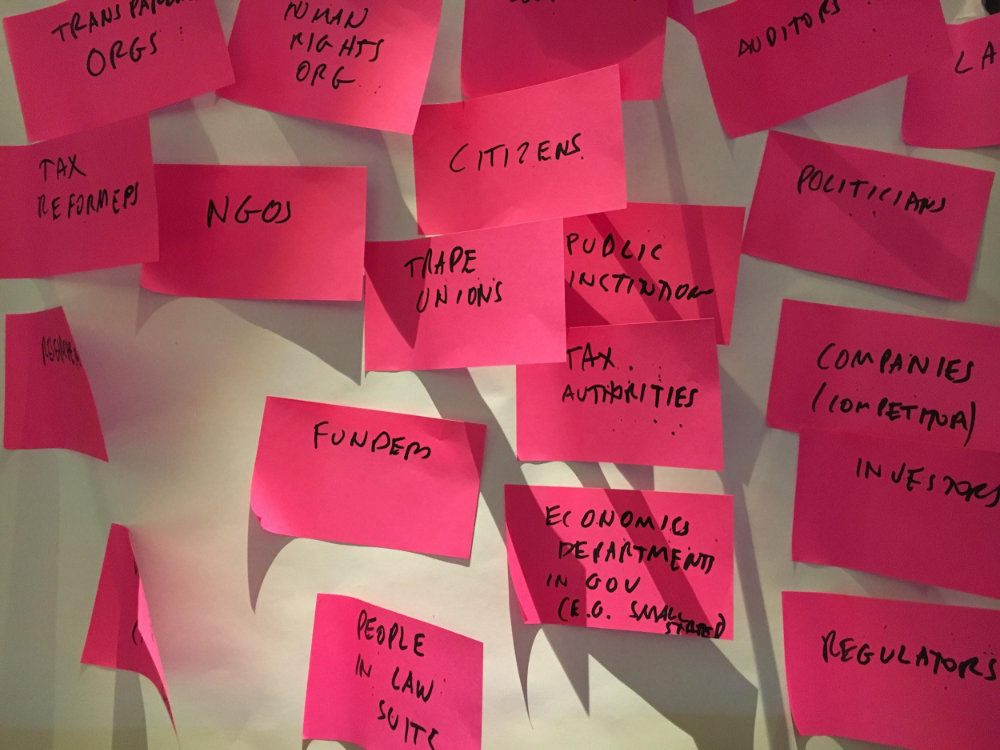 ORGS
HUMAN
RIGHTS
ORG
AUDITORS
LA
TAX
REFORMERS
NGOS
CITIZENS
POLITICIANS
TRADE
UNIONS
PUBLIC
INSTITUTIONS
TAX
AUTHORITIES
COMPANIES
(COMPETITOR)
FUNDERS
INVESTORS
ECONOMICS
DEPARTMENTS
IN GOV
(E.G. SMALL
STATES)
PEOPLE
IN LAW
SUITS
REGULATORS